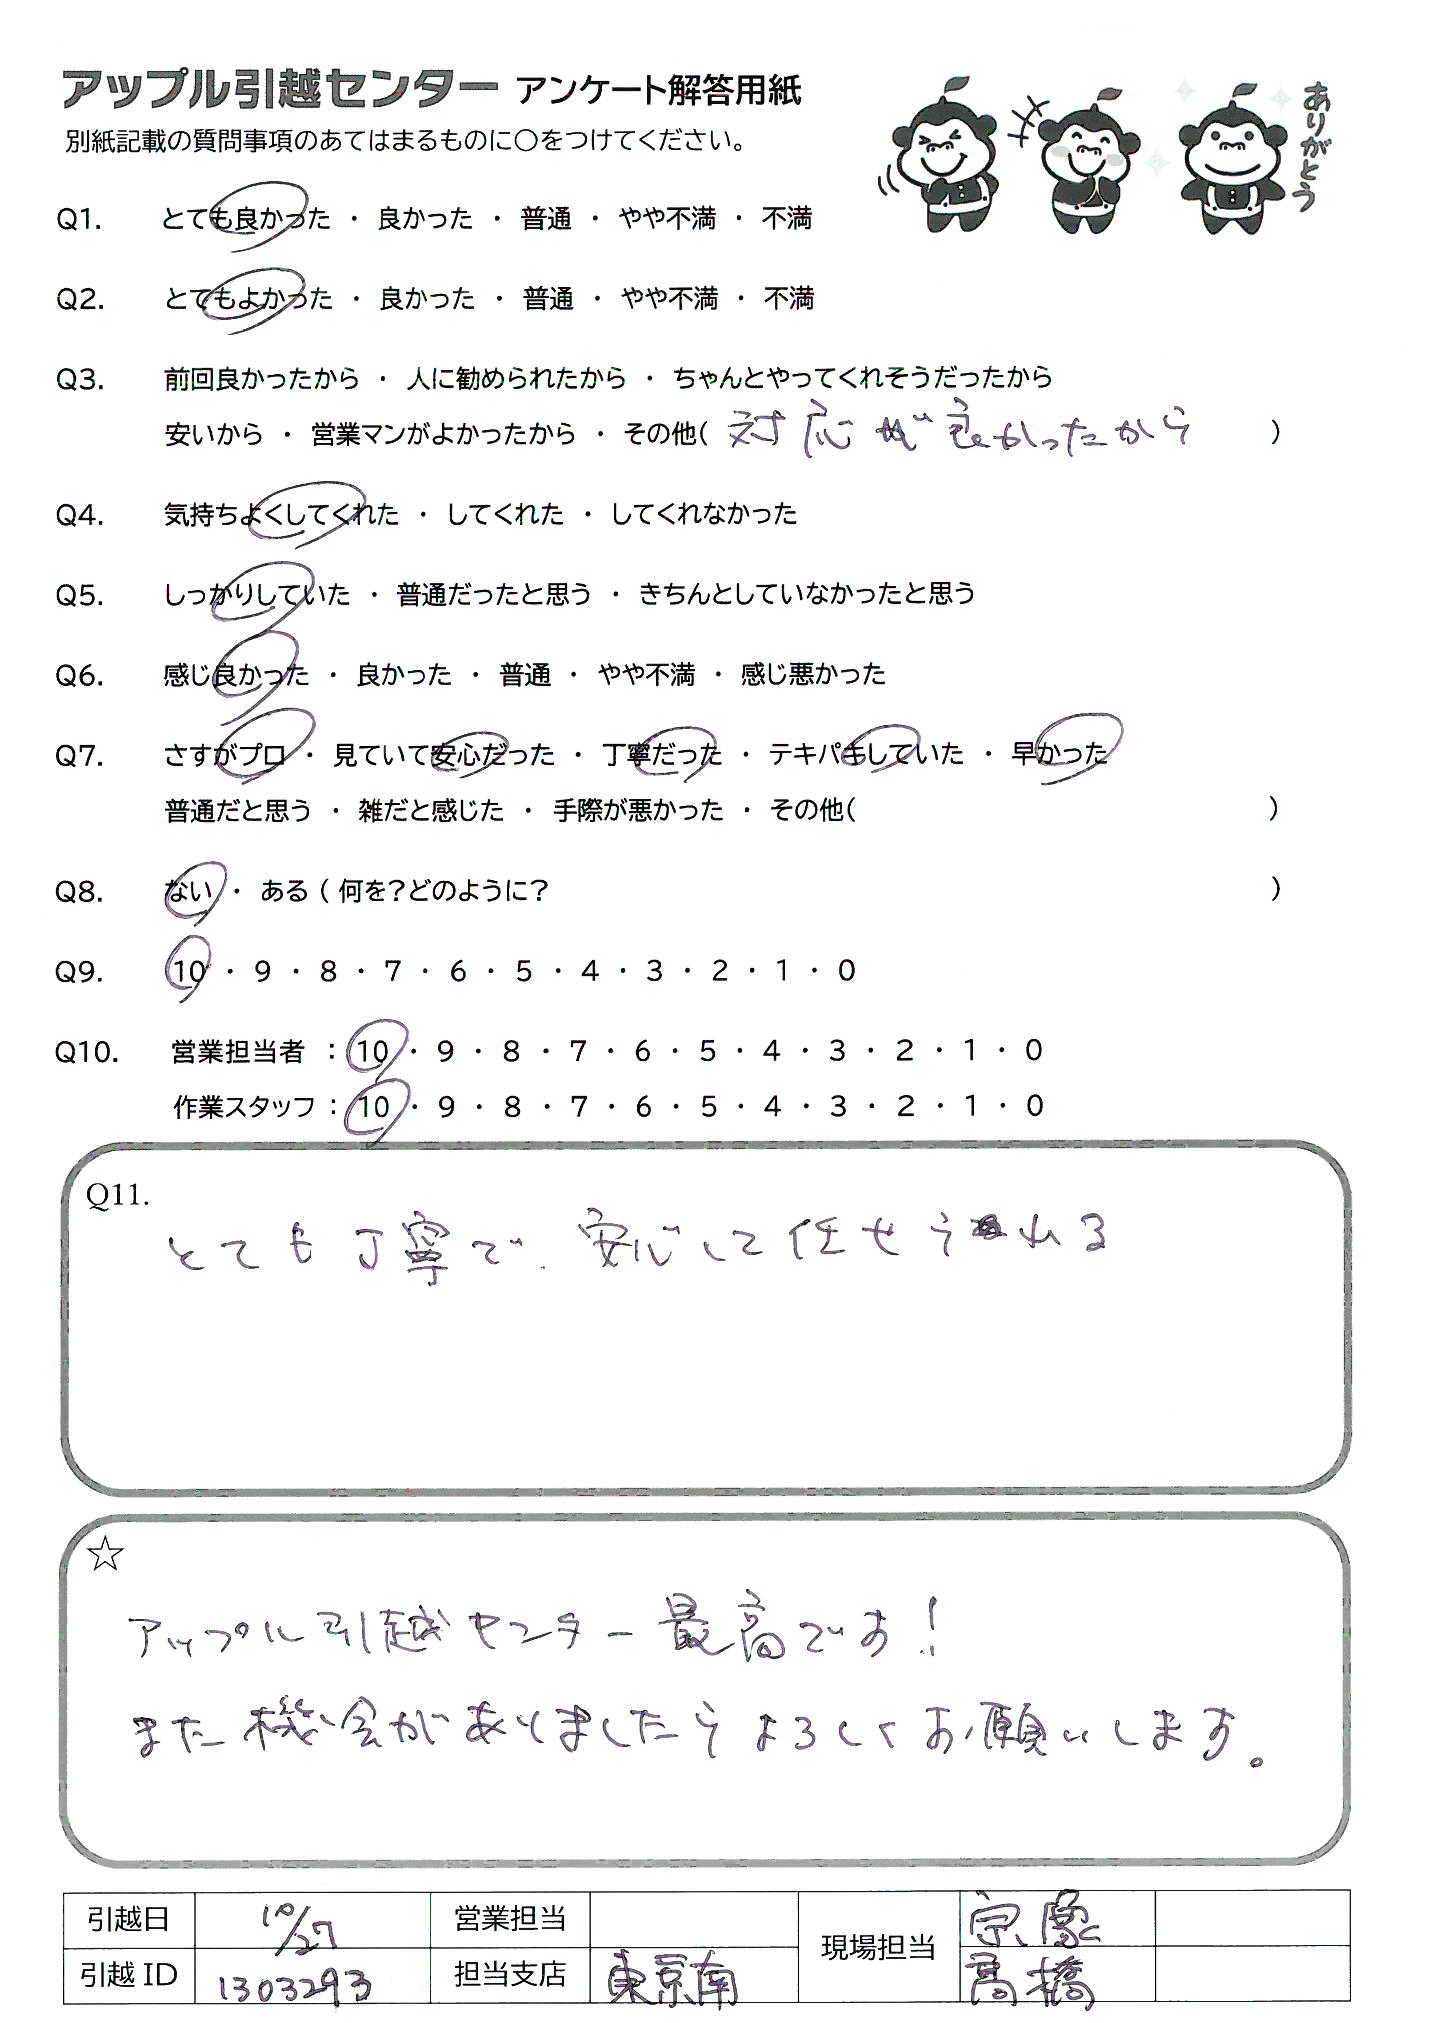 アップル引越センター アンケート解答用紙
別紙記載の質問事項のあてはまるものに〇をつけてください。
ありがとう
Q1. とても良かった ・ 良かった ・ 普通 ・ やや不満 ・ 不満
Q2. とてもよかった ・ 良かった ・ 普通 ・ やや不満 ・ 不満
Q3. 前回良かったから ・ 人に勧められたから ・ ちゃんとやってくれそうだったから
安いから ・ 営業マンがよかったから ・ その他( 対応が良かったから )
Q4. 気持ちよくしてくれた ・ してくれた ・ してくれなかった
Q5. しっかりしていた ・ 普通だったと思う ・ きちんとしていなかったと思う
Q6. 感じ良かった ・ 良かった ・ 普通 ・ やや不満 ・ 感じ悪かった
Q7. さすがプロ ・ 見ていて安心だった ・ 丁寧だった ・ テキパキしていた ・ 早かった
普通だと思う ・ 雑だと感じた ・ 手際が悪かった ・ その他( )
Q8. ない ・ ある ( 何を?どのように? )
Q9. 10 ・ 9 ・ 8 ・ 7 ・ 6 ・ 5 ・ 4 ・ 3 ・ 2 ・ 1 ・ 0
Q10. 営業担当者 : 10 ・ 9 ・ 8 ・ 7 ・ 6 ・ 5 ・ 4 ・ 3 ・ 2 ・ 1 ・ 0
作業スタッフ : 10 ・ 9 ・ 8 ・ 7 ・ 6 ・ 5 ・ 4 ・ 3 ・ 2 ・ 1 ・ 0
Q11.
とても丁寧で、安心して任せられる
☆
アップル引越センター最高です!
また機会がありましたらよろしくお願いします。
引越日 10/27 営業担当 現場担当 宗像
引越ID 1303293 担当支店 東京南 高橋